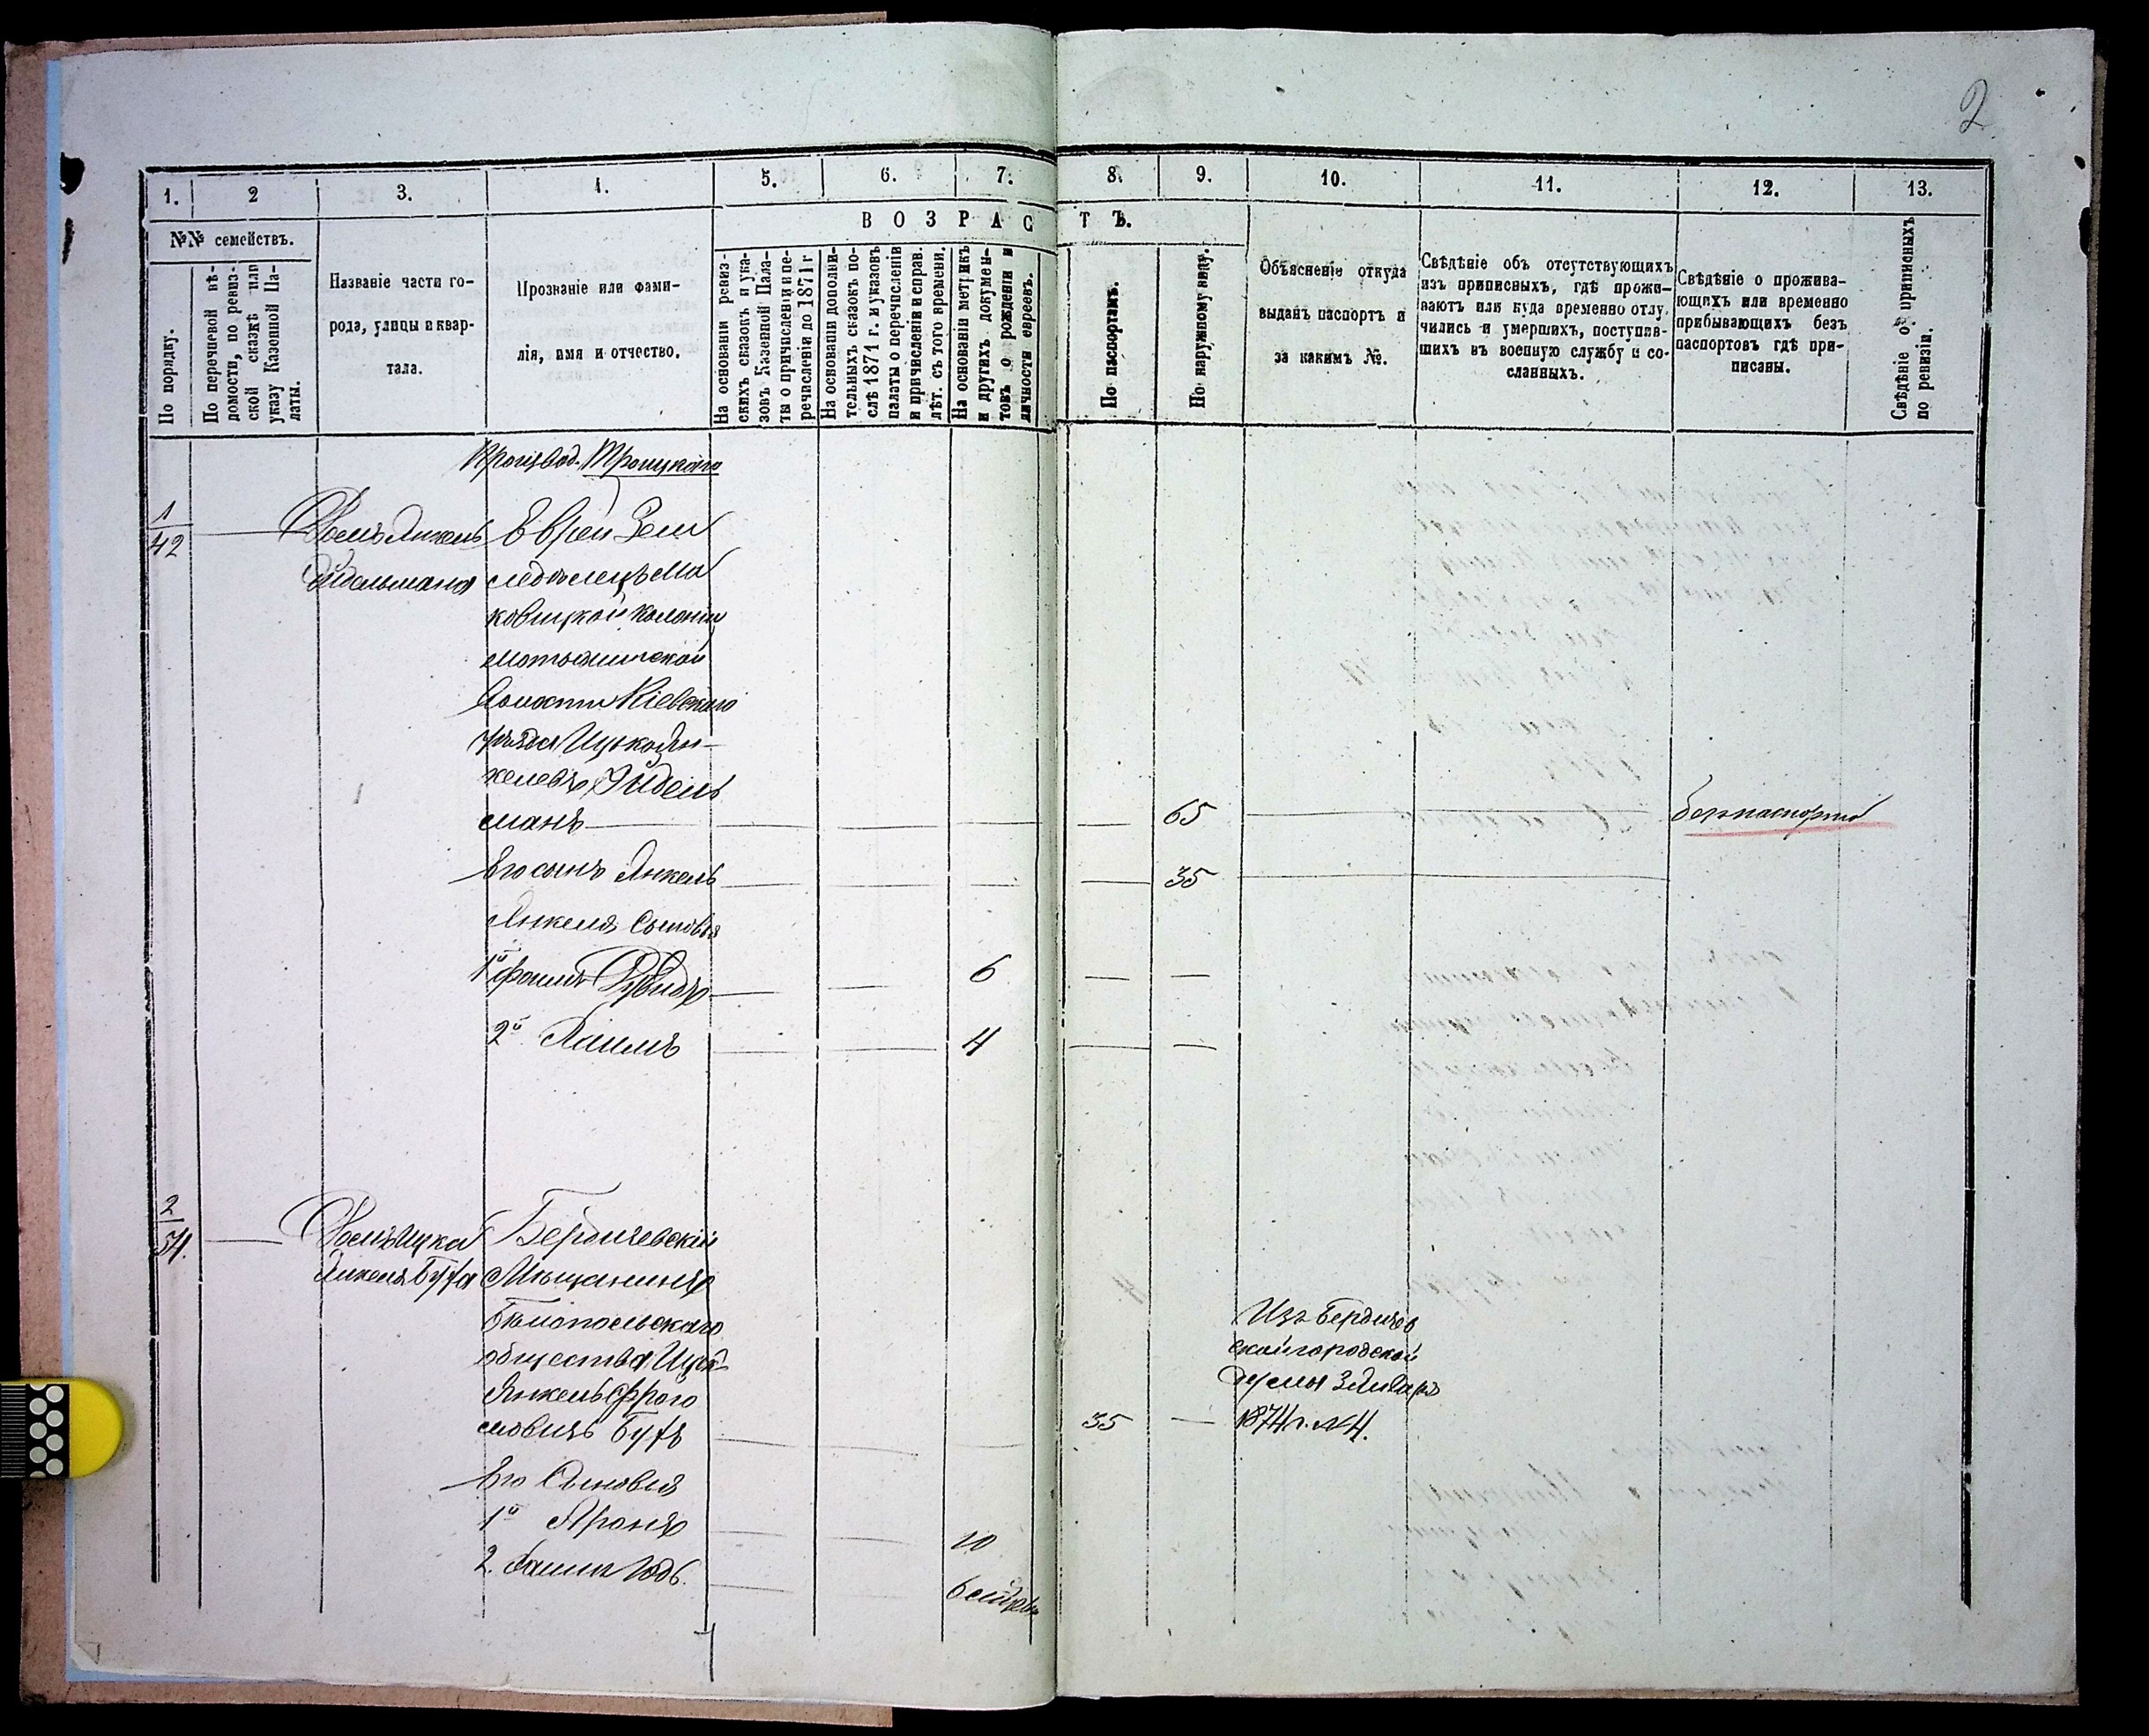 2
1.
2
3.
4.
5.
6.
7.
8.
9.
10.
11.
12.
13.
№№ семействъ.
В О З Р А С Т Ъ.
По порядку.
По перечневой вѣ-
домости, по ревиз-
ской сказкѣ или
указу Казенной Па-
латы.
Названіе части го-
рода, улицы и квар-
тала.
Прозваніе или фами-
лія, имя и отчество.
На основаніи ревиз-
скихъ сказокъ и ука-
зовъ Казенной Пала-
ты о причисленіи и пе-
речисленіи до 1871 г
На основаніи дополни-
тельныхъ сказокъ по-
слѣ 1871 г. и указовъ
палаты о перечисленіи
и причисленіи и справ.
лѣт. съ того времени.
На основаніи метрикъ
и другихъ докумен-
товъ о рожденіи и
личности евреевъ.
По паспортамъ.
По наружному виду.
Объясненіе откуда
выданъ паспортъ и
за какимъ №.
Свѣдѣніе объ отсутствующихъ
изъ приписныхъ, гдѣ прожи-
ваютъ или куда временно отлу-
чились и умершихъ, поступив-
шихъ въ военную службу и со-
сланныхъ.
Свѣдѣніе о прожива-
ющихъ или временно
прибывающихъ безъ
паспортовъ гдѣ при-
писаны.
Свѣдѣніе о приписныхъ
по ревизіи.
Производ. Троицкаго
1
42
Домъ Янкель
Эйдельмана
Еврей Зем
ледѣлецъ Ма
ковицкой Колоніи
Мотыжинской
Волости Кіевскаго
уѣзда Ицько Ян-
келевъ Эйдель
манъ
65
безпаспортн
Его сынъ Янкель
35
Янкеля Сыновья
1й Фроимъ Рувинъ
6
2й Хаимъ
4
2
54.
Домъ Ицка
Янкеля Буха
Бердичевскій
Мѣщанинъ
Бѣлопольскаго
общества Ицко
Янкель Фрои
мовичъ Бухъ
35
Изъ Бердичев
ской городской
думы 3 Января
1874 г. № 4.
Его Сыновья
1й Аронъ
10
2.
6